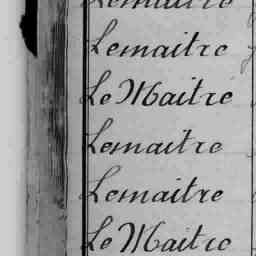 Lemaitre
Lemaitre
Le Maitre
Lemaitre
Lemaitre
Le Maitre